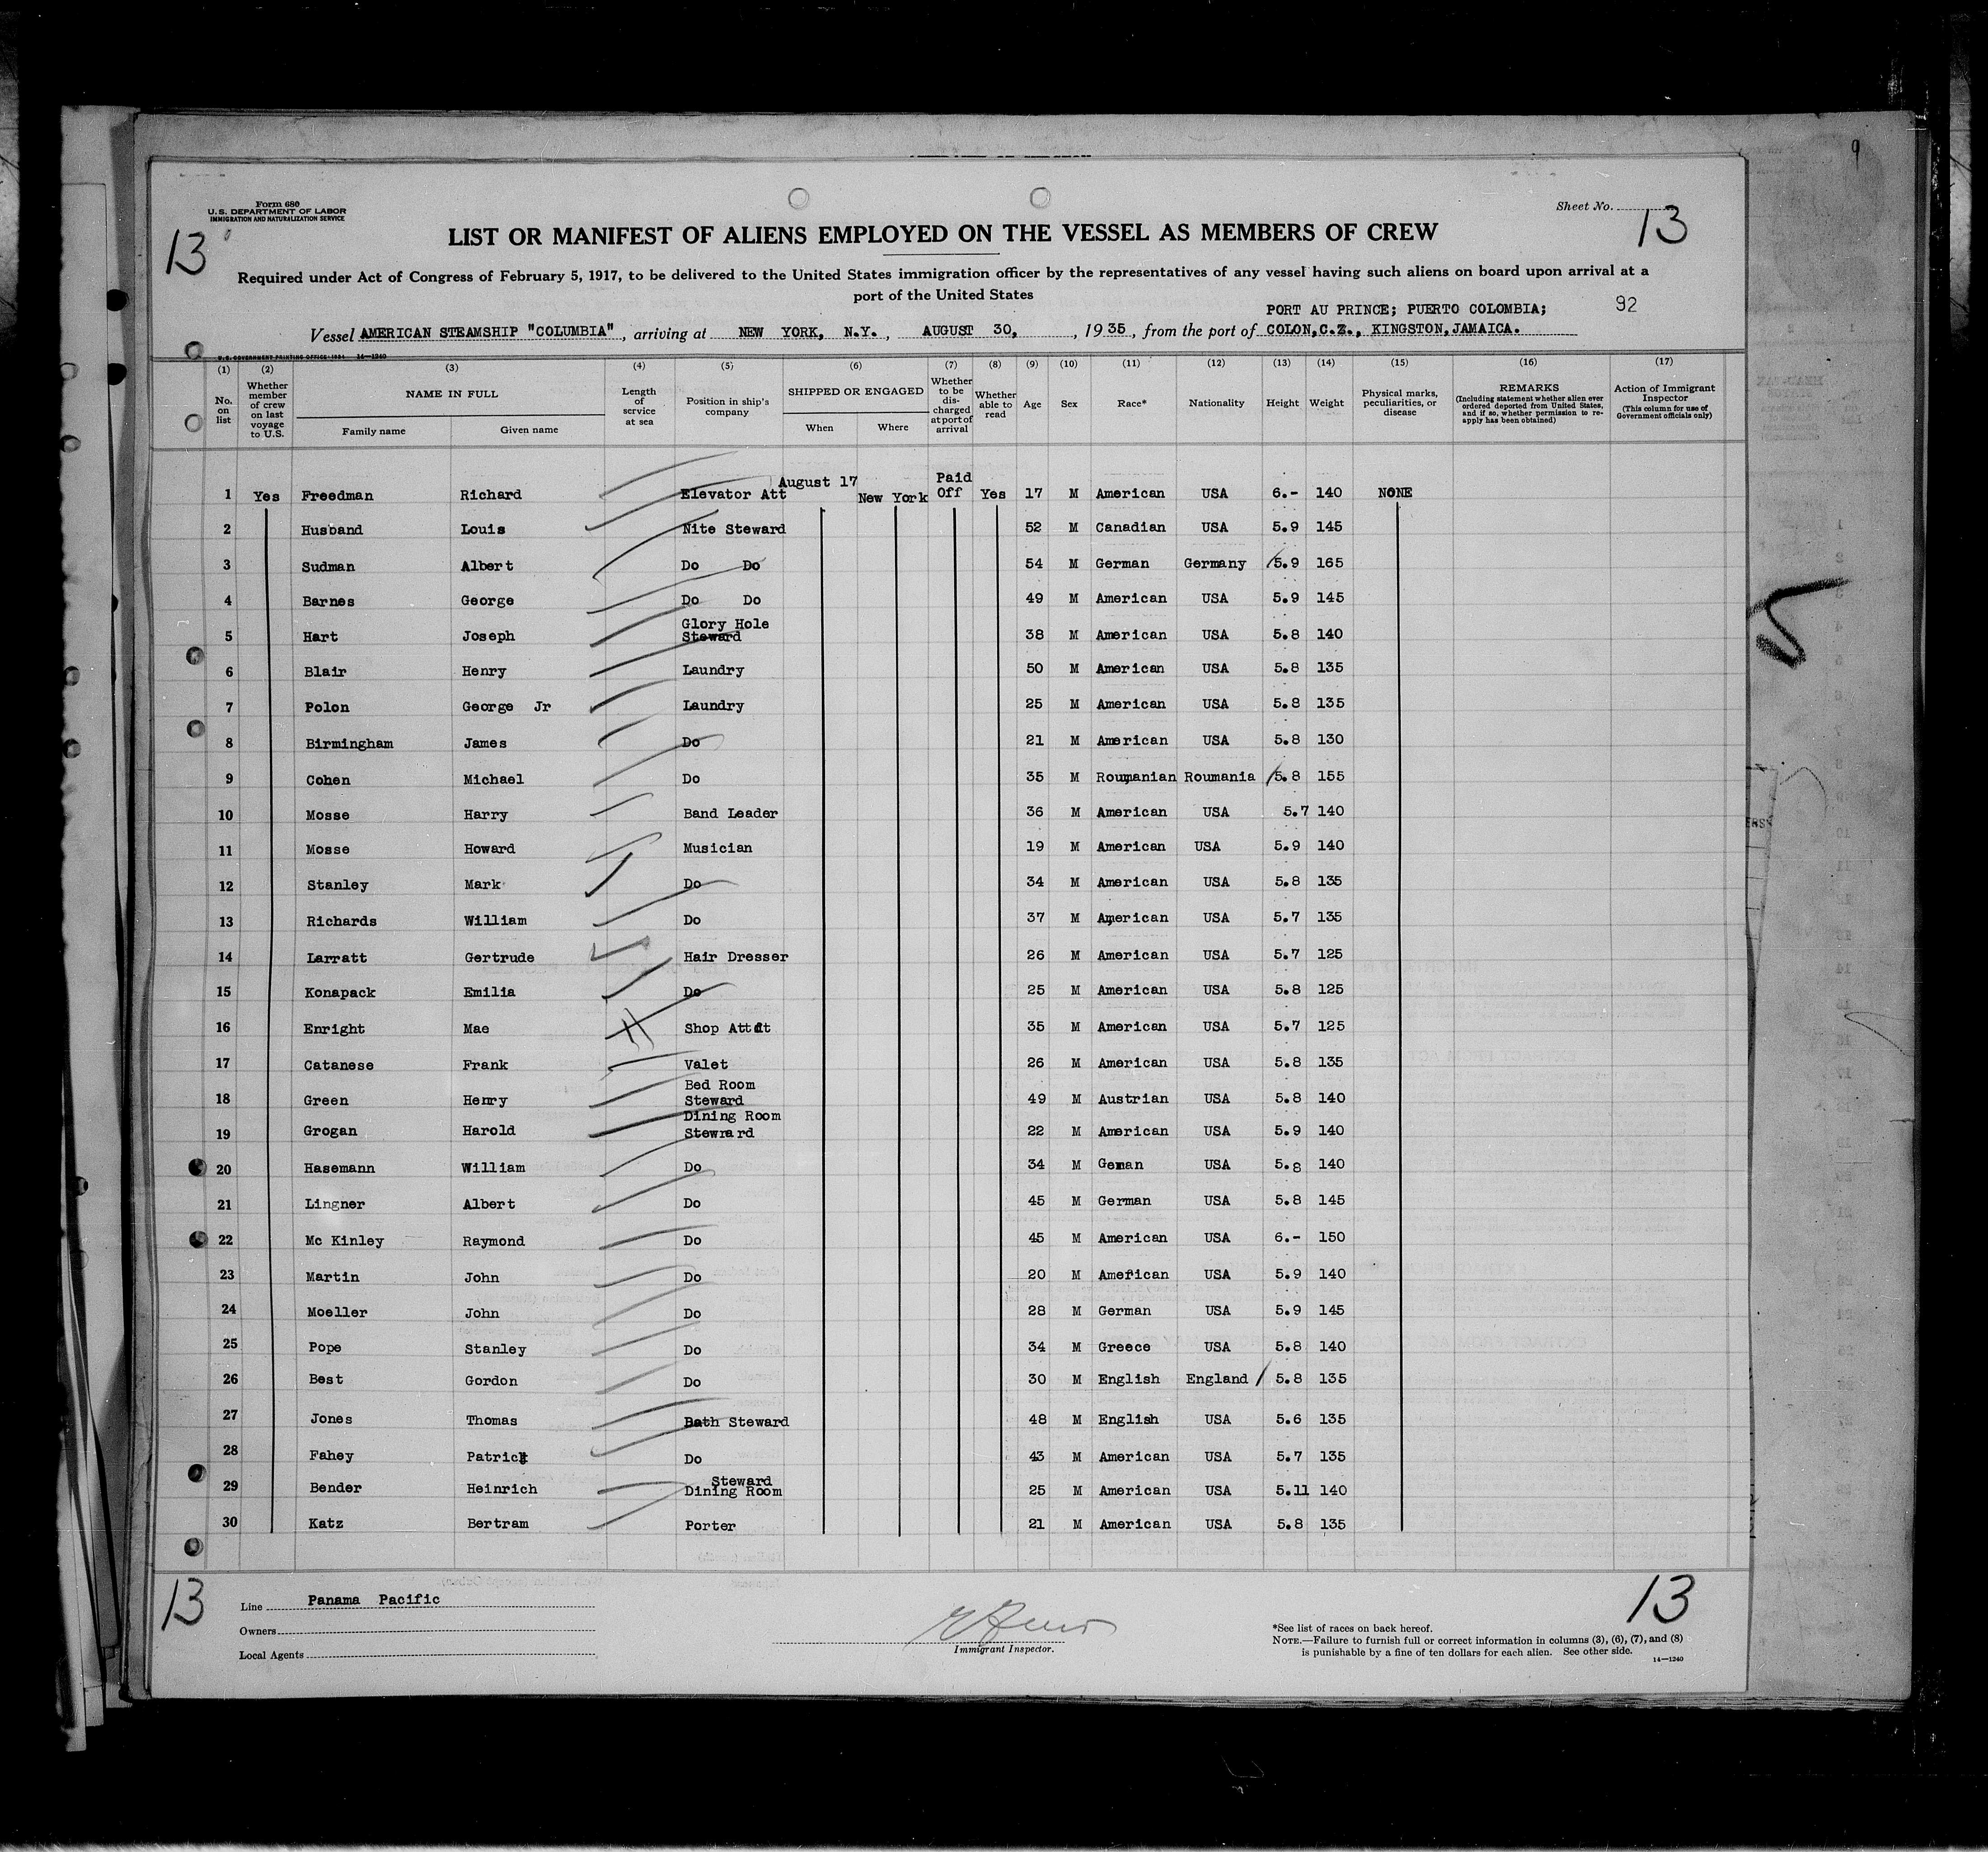 Form 680
U.S. DEPARTMENT OF LABOR
IMMIGRATION AND NATURALIZATION SERVICE
Sheet No. 13
13
9
LIST OR MANIFEST OF ALIENS EMPLOYED ON THE VESSEL AS MEMBERS OF CREW
Required under Act of Congress of February 5, 1917, to be delivered to the United States immigration officer by the representatives of any vessel having such aliens on board upon arrival at a
port of the United States
PORT AU PRINCE; PUERTO COLOMBIA; 92
Vessel AMERICAN STEAMSHIP "COLUMBIA", arriving at NEW YORK, N.Y., AUGUST 30, , 1935, from the port of COLON,C.Z., KINGSTON,JAMAICA.
U.S. GOVERNMENT PRINTING OFFICE: 1934 14—1240
(1) No. on list
(2) Whether member of crew on last voyage to U.S.
(3) NAME IN FULL
Family name Given name
(4) Length of service at sea
(5) Position in ship's company
(6) SHIPPED OR ENGAGED
When Where
(7) Whether to be discharged at port of arrival
(8) Whether able to read
(9) Age
(10) Sex
(11) Race*
(12) Nationality
(13) Height
(14) Weight
(15) Physical marks, peculiarities, or disease
(16) REMARKS (Including statement whether alien ever ordered deported from United States, and if so, whether permission to re-apply has been obtained)
(17) Action of Immigrant Inspector (This column for use of Government officials only)
1 Yes Freedman Richard Elevator Att August 17 New York Paid Off Yes 17 M American USA 6.- 140 NONE
2 Husband Louis Nite Steward 52 M Canadian USA 5.9 145
3 Sudman Albert Do Do 54 M German Germany 5.9 165
4 Barnes George Do Do 49 M American USA 5.9 145
5 Hart Joseph Glory Hole Steward 38 M American USA 5.8 140
6 Blair Henry Laundry 50 M American USA 5.8 135
7 Polon George Jr Laundry 25 M American USA 5.8 135
8 Birmingham James Do 21 M American USA 5.8 130
9 Cohen Michael Do 35 M Roumanian Roumania 5.8 155
10 Mosse Harry Band Leader 36 M American USA 5.7 140
11 Mosse Howard Musician 19 M American USA 5.9 140
12 Stanley Mark Do 34 M American USA 5.8 135
13 Richards William Do 37 M American USA 5.7 135
14 Larratt Gertrude Hair Dresser 26 M American USA 5.7 125
15 Konapack Emilia Do 25 M American USA 5.8 125
16 Enright Mae Shop Attdt 35 M American USA 5.7 125
17 Catanese Frank Valet 26 M American USA 5.8 135
18 Green Henry Bed Room Steward 49 M Austrian USA 5.8 140
19 Grogan Harold Dining Room Stewrard 22 M American USA 5.9 140
20 Hasemann William Do 34 M Geman USA 5.8 140
21 Lingner Albert Do 45 M German USA 5.8 145
22 Mc Kinley Raymond Do 45 M American USA 6.- 150
23 Martin John Do 20 M American USA 5.9 140
24 Moeller John Do 28 M German USA 5.9 145
25 Pope Stanley Do 34 M Greece USA 5.8 140
26 Best Gordon Do 30 M English England 5.8 135
27 Jones Thomas Bath Steward 48 M English USA 5.6 135
28 Fahey Patrick Do 43 M American USA 5.7 135
29 Bender Heinrich Steward Dining Room 25 M American USA 5.11 140
30 Katz Bertram Porter 21 M American USA 5.8 135
13
13
Line Panama Pacific
Owners
Local Agents
Immigrant Inspector.
*See list of races on back hereof.
NOTE.—Failure to furnish full or correct information in columns (3), (6), (7), and (8)
is punishable by a fine of ten dollars for each alien. See other side.
14—1240